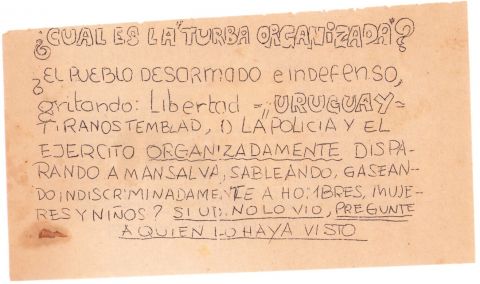 ¿CUAL ES LA "TURBA ORGANIZADA"?
¿EL PUEBLO DESARMADO e INDEFENSO,
gritando: Libertad = URUGUAY =
TIRANOS TEMBLAD, O LA POLICIA Y EL
EJERCITO ORGANIZADAMENTE DISPA-
RANDO A MANSALVA, SABLEANDO, GASEAN-
DO INDISCRIMINADAMENTE A HOMBRES, MUJE-
RES Y NIÑOS? SI UD. NO LO VIO, PREGUNTE
A QUIEN LO HAYA VISTO